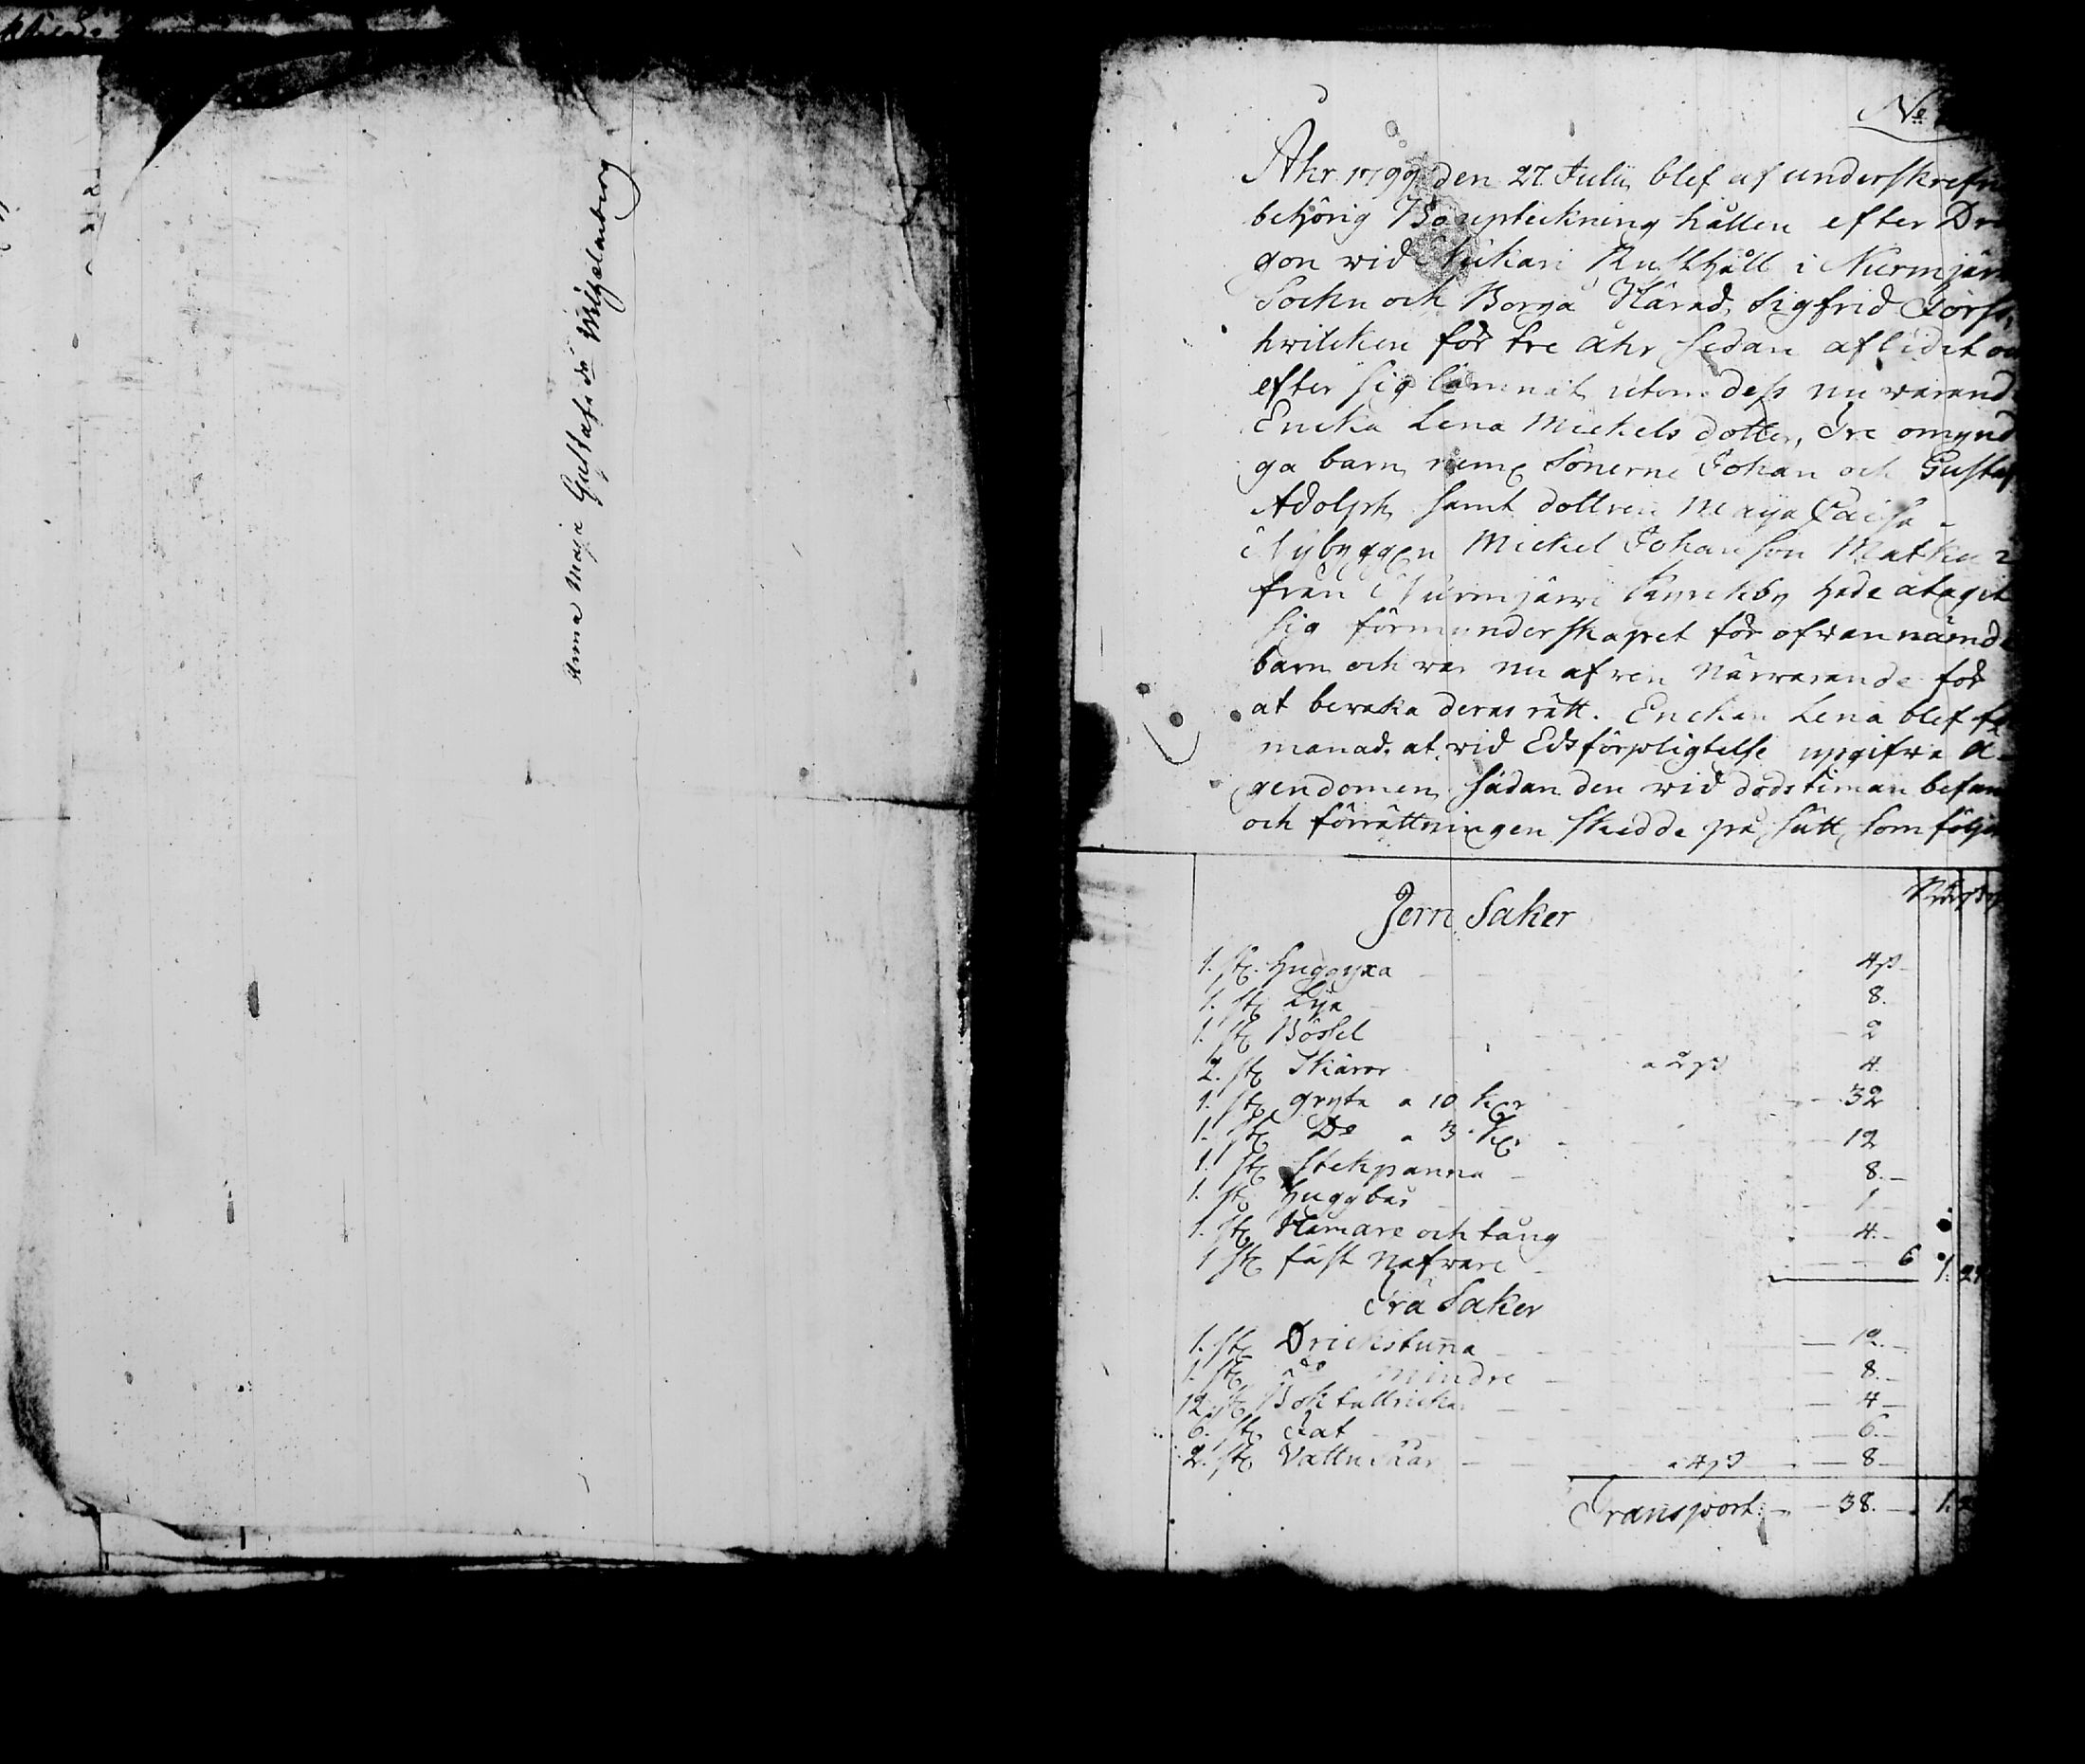 Anna Maja Gustafsdr Mihelaberg
No
Åhr 1799 den 27. Julii, blef af underskrefn
behörig Bouptekning hållen efter Dra
gon wid Nukari Rusthåll i Nurmijär
Sockn och Borgå Härad, Sigfrid Törf
hwilcken för tre åhr sedan aflidit oc
efter sig lämnat utom dess nu warand
Encka Lena Mickels dotter, Tre omynd
ga barn, neml Sönerne Johan och Gustaf
Adolph, samt dottren Maija Caisa
Nybyggen Mickel Johanson Matku
från Nurmijärwi Kyrckby hade åtagit
sig förmynderskapet för ofwannämde
barn och war nu äfwen närwarande för
at bewaka deras rätt. Enckan Lena blef fö
manad, at wid Edsförpligtelse upgifwa Ä
gendomen sådan den wid dödstiman befan
och förrättningen skedde på sätt, som följe
Jern Saker
1. st. Huggyxa 4 ß
1. st Lija 8.
1. st Bössel 2
2. st Skäror a 2 ß 4.
1. st gryta a 10 k:r 32
1. st Do a 3 k: 12
1. st Stekpanna 8.
1. st Huggbår 1
1. st Hamare och tång 4.
1 st fäst Nafware 6 1.
Trä Saker
1. st Drickstunna 12.
1. st do Mindre 8.
12. st Bok tallrickar 4
6. st Fat 6.
2. st Vattu Såar a 4 ß 8
Transport: 38. 1.